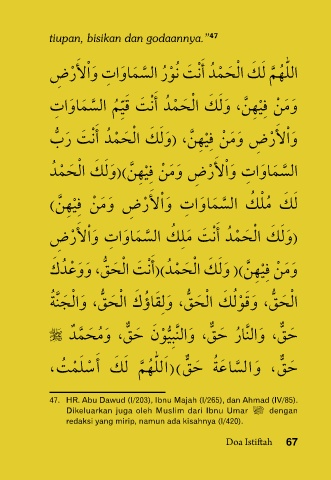 tiupan, bisikan dan godaannya."47
اللّٰهُمَّ لَكَ الْحَمْدُ أَنْتَ نُوْرُ السَّمَاوَاتِ وَالْأَرْضِ
وَمَنْ فِيْهِنَّ، وَلَكَ الْحَمْدُ أَنْتَ قَيِّمُ السَّمَاوَاتِ
وَالْأَرْضِ وَمَنْ فِيْهِنَّ، (وَلَكَ الْحَمْدُ أَنْتَ رَبُّ
السَّمَاوَاتِ وَالْأَرْضِ وَمَنْ فِيْهِنَّ)(وَلَكَ الْحَمْدُ
لَكَ مُلْكُ السَّمَاوَاتِ وَالْأَرْضِ وَمَنْ فِيْهِنَّ)
(وَلَكَ الْحَمْدُ أَنْتَ مَلِكُ السَّمَاوَاتِ وَالْأَرْضِ
وَمَنْ فِيْهِنَّ )( وَلَكَ الْحَمْدُ)(أَنْتَ الْحَقُّ، وَوَعْدُكَ
الْحَقُّ، وَقَوْلُكَ الْحَقُّ، وَلِقَاؤُكَ الْحَقُّ، وَالْجَنَّةُ
حَقٌّ، وَالنَّارُ حَقٌّ، وَالنَّبِيُّوْنَ حَقٌّ، وَمُحَمَّدٌ ﷺ
حَقٌّ، وَالسَّاعَةُ حَقٌّ)(اَللّٰهُمَّ لَكَ أَسْلَمْتُ،
47. HR. Abu Dawud (I/203), Ibnu Majah (I/265), dan Ahmad (IV/85).
Dikeluarkan juga oleh Muslim dari Ibnu Umar ﷺ dengan
redaksi yang mirip, namun ada kisahnya (I/420).
Doa Istiftah 67